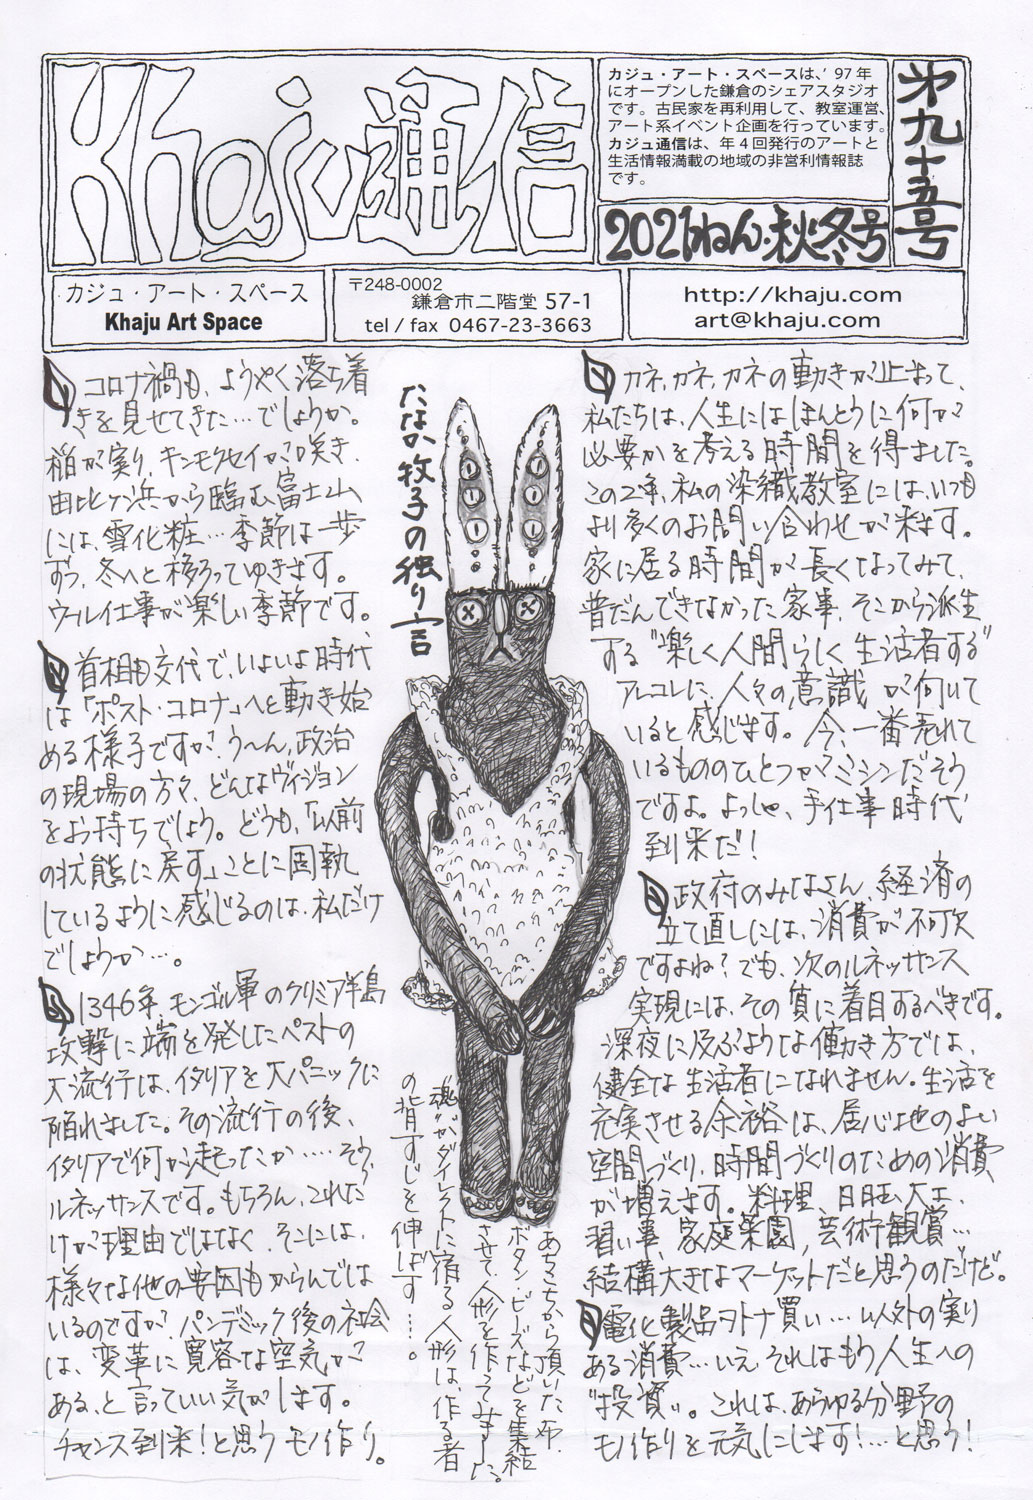 Khaju通信
カジュ・アート・スペースは、'97年
にオープンした鎌倉のシェアスタジオ
です。古民家を再利用して、教室運営、
アート系イベント企画を行っています。
カジュ通信は、年4回発行のアートと
生活情報満載の地域の非営利情報誌
です。
2021ねん・秋冬号
第九十五号
カジュ・アート・スペース
Khaju Art Space
〒248-0002
鎌倉市二階堂 57-1
tel / fax 0467-23-3663
http://khaju.com
art@khaju.com
たなか牧子の独り言
コロナ禍も、ようやく落ち着
きを見せてきた…でしょうか。
稲が実り、キンモクセイが咲き、
由比ヶ浜から臨む富士山
には、雪化粧…季節は一歩
ずつ、冬へと移ろってゆきます。
ウール仕事が楽しい季節です。
首相も交代で、いよいよ時代
は「ポスト・コロナ」へと動き始
める様子ですが、う〜ん、政治
の現場の方々、どんなヴィジョン
をお持ちでしょう。どうも、「以前
の状態に戻す」ことに固執
しているように感じるのは、私だけ
でしょうか…。
1346年、モンゴル軍のクリミア半島
攻撃に端を発したペストの
大流行は、イタリアを大パニックに
陥れました。その流行の後、
イタリアで何が起ったか……そう、
ルネッサンスです。もちろん、これだ
けが理由ではなく、そこには、
様々な他の要因もからんでは
いるのですが、パンデミック後の社会
は、変革に寛容な空気が
ある、と言っていい気がします。
チャンス到来！と思うモノ作り。
カネ、カネ、カネの動きが止まって、
私たちは、人生にはほんとうに何が
必要かを考える時間を得ました。
この2年、私の染織教室には、いつも
より多くのお問い合わせが来ます。
家に居る時間が長くなってみて、
普だんできなかった家事、そこから派生
する"楽しく人間らしく生活者する"
アレコレに、人々の意識が向いて
いると感じます。今、一番売れて
いるもののひとつがミシンだそう
ですよ。よっしゃ、手仕事時代
到来だ！
政府のみなさん、経済の
立て直しには、消費が不可欠
ですよね？でも、次のルネッサンス
実現には、その質に着目するべきです。
深夜に及ぶような働き方では、
健全な生活者になれません。生活を
充実させる余裕は、居心地のよい
空間づくり、時間づくりのための消費
が増えます。料理、日曜大工、
習い事、家庭菜園、芸術観賞…
結構大きなマーケットだと思うのだけど。
電化製品ヲトナ買い…以外の実り
ある消費…いえ、それはもう人生への
"投資"。これは、あらゆる分野の
モノ作りを元気にします！…と思う！
あちこちから頂いた布、
ボタン、ビーズなどを集結
させて、人形を作ってみました。
"魂"がダイレクトに宿る人形は、作る者
の背すじを伸ばす…。